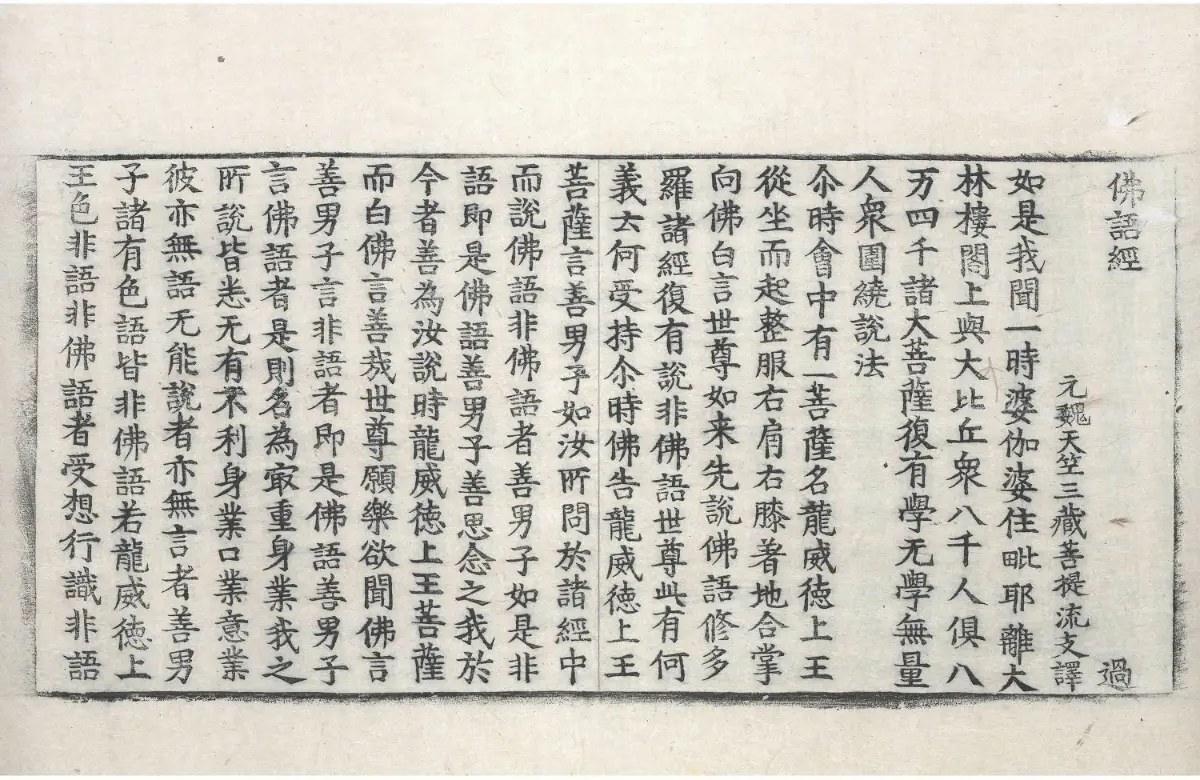 佛語經
過
元魏天竺三藏菩提流支譯
如是我聞一時婆伽婆住毗耶離大
林樓閣上與大比丘衆八千人俱八
万四千諸大菩薩復有學无學無量
人衆圍繞說法
尒時會中有一菩薩名龍威徳上王
從坐而起整服右肩右膝著地合掌
向佛白言世尊如来先說佛語修多
羅諸經復有說非佛語世尊此有何
義云何受持尒時佛告龍威徳上王
菩薩言善男子如汝所問於諸經中
而說佛語非佛語者善男子如是非
語即是佛語善男子善思念之我於
今者善為汝說時龍威徳上王菩薩
而白佛言善㢤世尊願樂欲聞佛言
善男子言非語者即是佛語善男子
言佛語者是則名為㝡重身業我之
所說皆悉无有不利身業口業意業
彼亦無語无能說者亦無言者善男
子諸有色語皆非佛語若龍威徳上
王色非語非佛語者受想行識非語